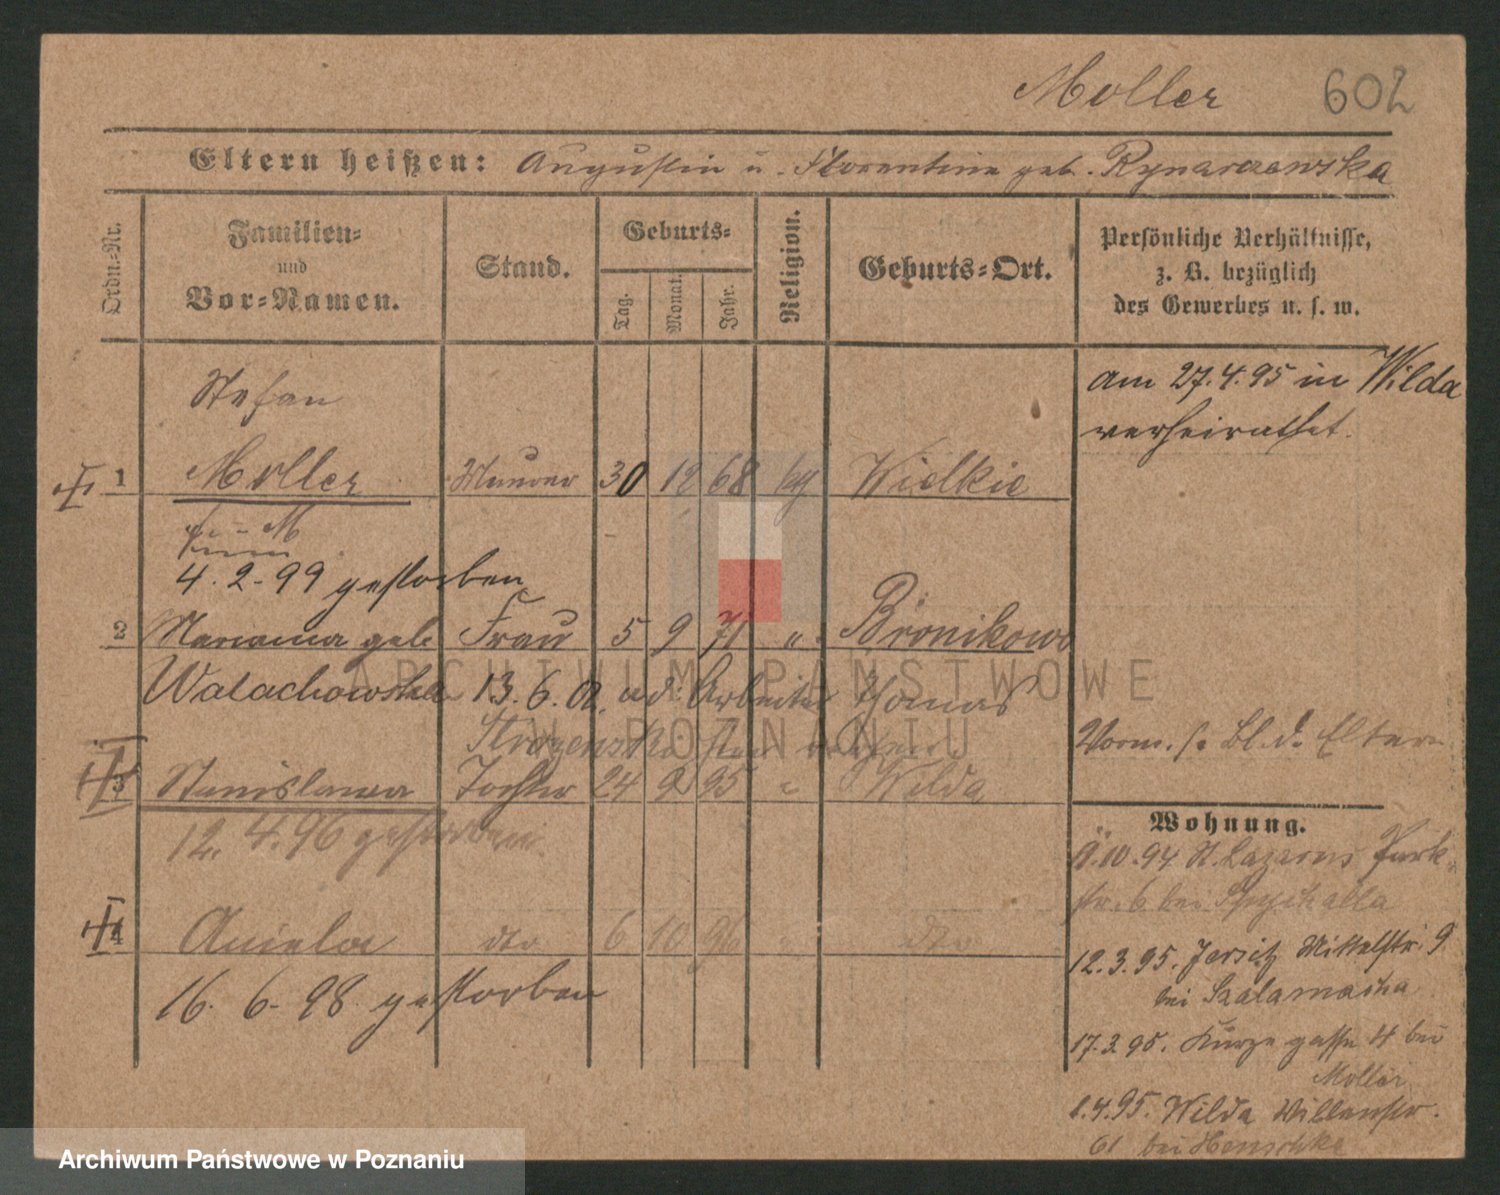 Moller 602
Eltern heißen: Augustin u. Florentine geb. Rynarzewska
Ordn.-Nr.
Familien-
und
Vor-Namen.
Stand.
Geburts-
Tag. Monat. Jahr.
Religion.
Geburts-Ort.
Persönliche Verhältnisse,
z. B. bezüglich
des Gewerbes u. s. w.
am 27.4.95 in Wilda
verheirathet.
Stefan
1 Moller Maurer 30 12 68 kg Wielkie
4.2.99 gestorben
2 Marianna geb. Frau 5 9 71 " Bronikowo
Walachowska 13.6.02. Arbeiter Thomas
Vorm. s. Bl. d. Eltern
3 Stanislawa Tochter 24 9 95 " Wilda
12.4.96 gestorben
4 Aniela dto 6 10 96 " dto
16.6.98 gestorben
Wohnung.
10.94 St. Lazarus Park-
str. 6 bei Spychalla
12.3.95. Jersitz Mittelstr. 9
bei
17.3.95. Kurze gasse 4 bei
Moller
1.4.95. Wilda
61 bei Henschke
ARCHIWUM PAŃSTWOWE
W POZNANIU
Archiwum Państwowe w Poznaniu